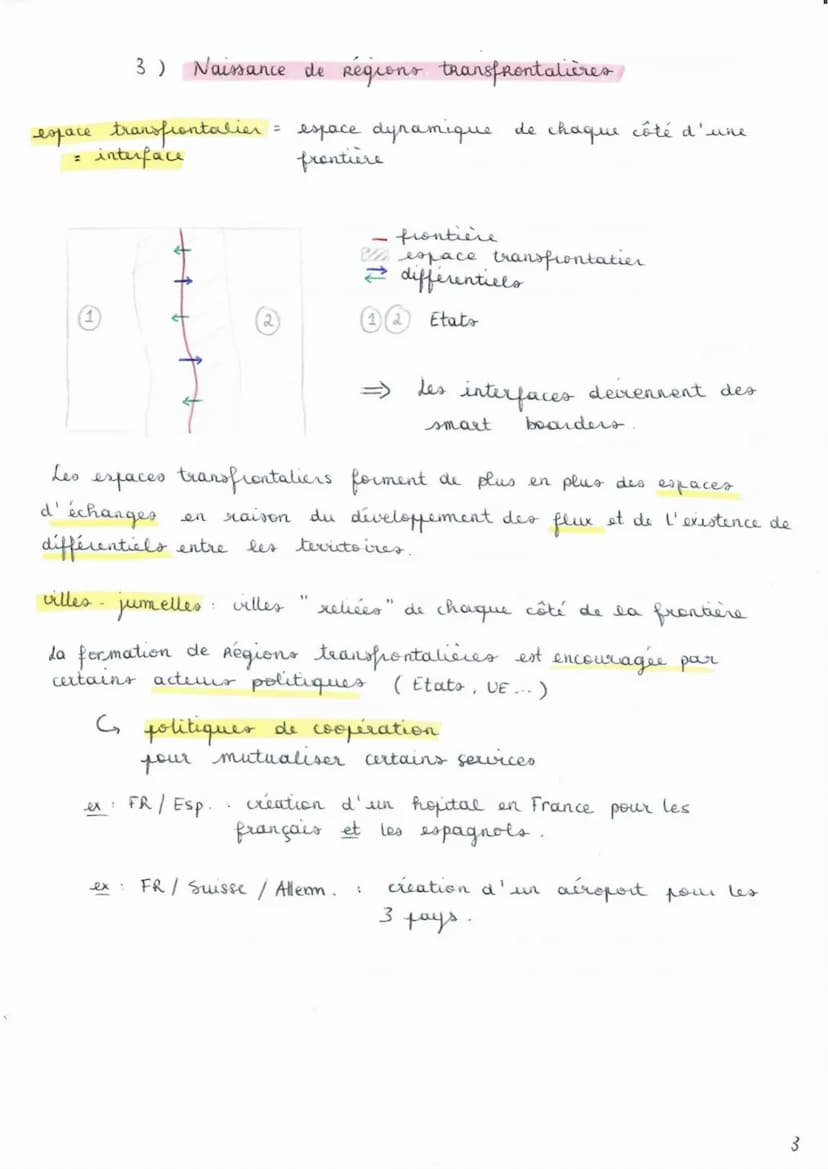 3) Naissance de Régions transfrontalières
espace transfrontalier = espace dynamique de chaque côté d'une
= interface frontière
frontière
espace transfrontalier
différentiels
1 2 1 2 Etats
⇒ Les interfaces deviennent des
smart boarders.
Les espaces transfrontaliers forment de plus en plus des espaces
d'échanges en raison du développement des flux et de l'existence de
différentiels entre les territoires.
villes-jumelles : villes "reliées" de chaque côté de la frontière
La formation de Régions transfrontalières est encouragée par
certains acteurs politiques (Etats, UE...)
↳ politiques de coopération
pour mutualiser certains services
ex : FR / Esp. : création d'un hopital en France pour les
français et les espagnols.
ex : FR / Suisse / Allem. : création d'un aéroport pour les
3 pays.
3